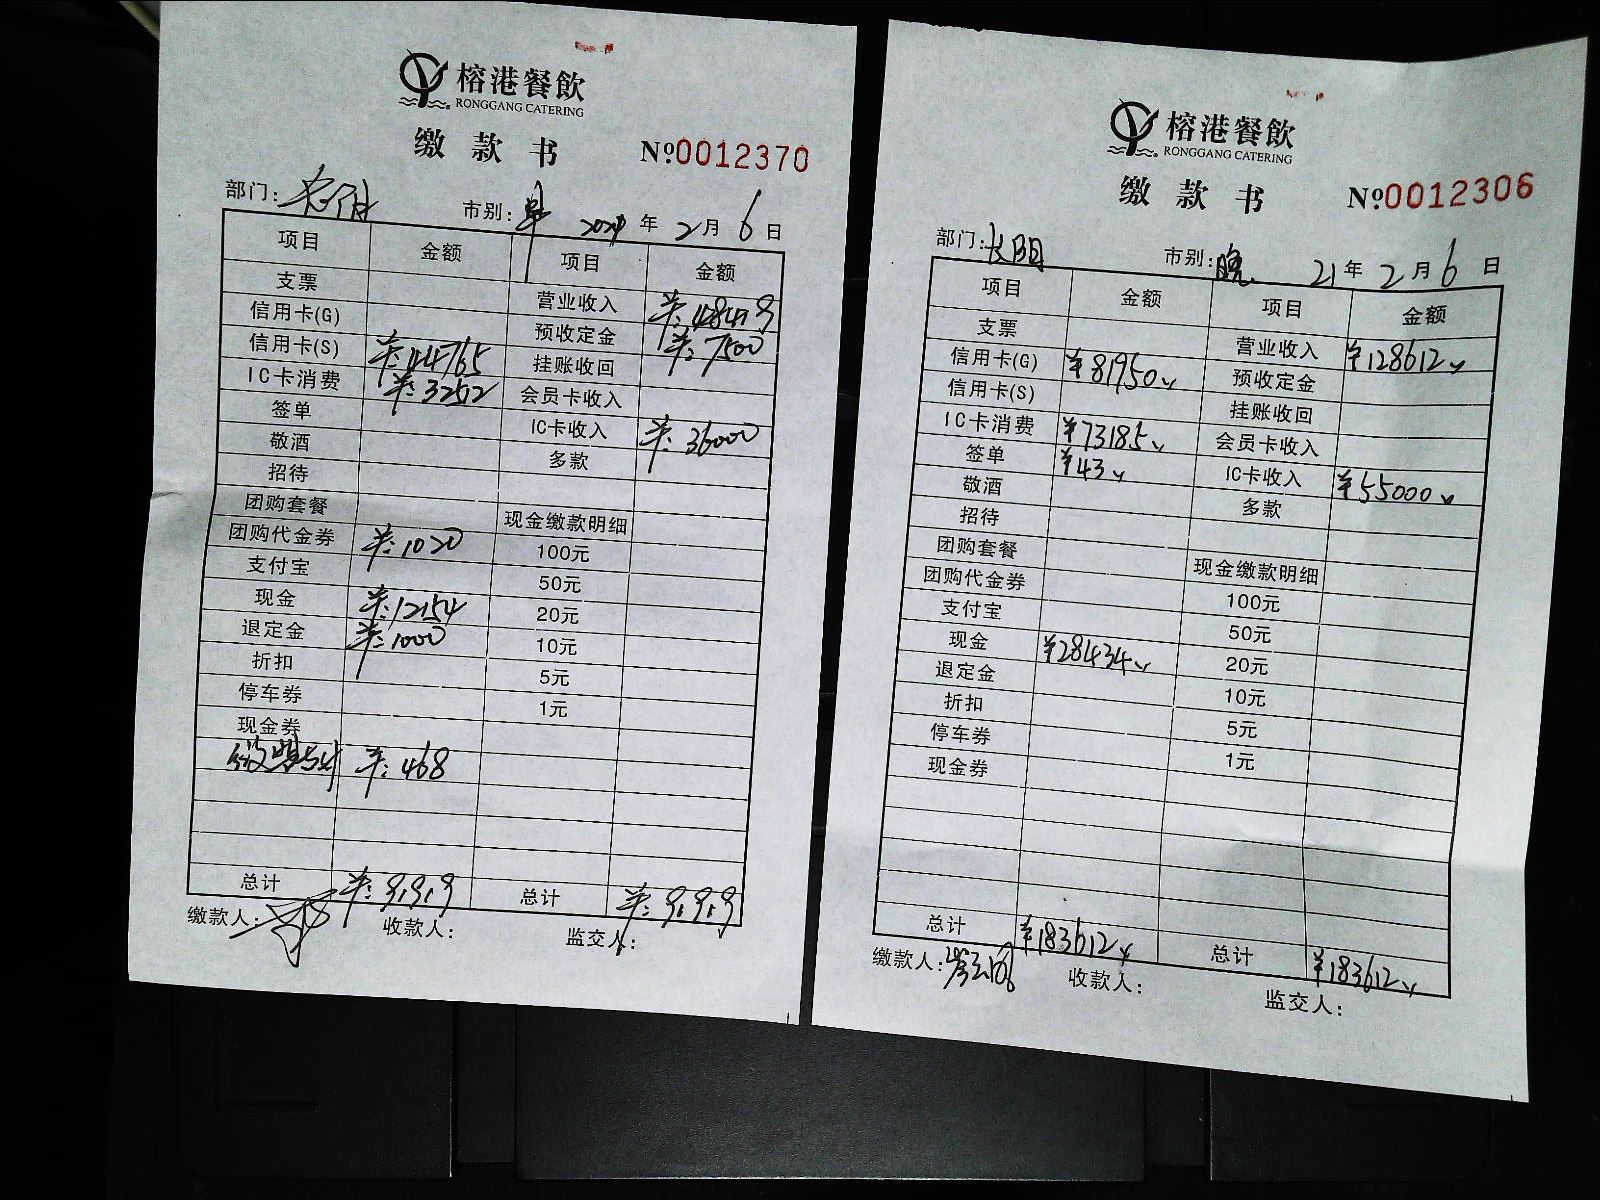 榕港餐飲
RONGGANG CATERING
缴款书 №0012370
部门: 市别: 早 年 2月 6日
项目 金额 项目 金额
支票 营业收入
信用卡(G) 预收定金 ¥:7500
信用卡(S) ¥:44765 挂账收回
IC卡消费 ¥:3252 会员卡收入
签单 IC卡收入 ¥:36000
敬酒 多款
招待
团购套餐 现金缴款明细
团购代金券 ¥:1020 100元
支付宝 50元
现金 ¥:12154 20元
退定金 ¥:1000 10元
折扣 5元
停车券 1元
现金券
¥:468
总计 总计
缴款人: 收款人: 监交人:
榕港餐飲
RONGGANG CATERING
缴款书 №0012306
部门: 长阳 市别: 晚 21年 2月 6日
项目 金额 项目 金额
支票 营业收入 ¥128612
信用卡(G) ¥81950 预收定金
信用卡(S) 挂账收回
IC卡消费 ¥73185 会员卡收入
签单 ¥43 IC卡收入 ¥55000
敬酒 多款
招待
团购套餐 现金缴款明细
团购代金券 100元
支付宝 50元
现金 ¥28434 20元
退定金 10元
折扣 5元
停车券 1元
现金券
总计 ¥183612 总计 ¥183612
缴款人: 收款人: 监交人: